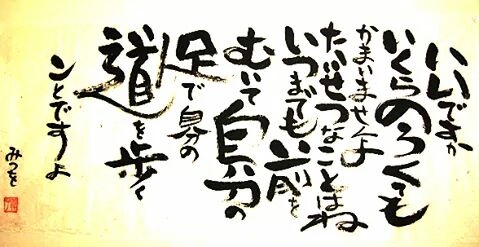 いいですか
いくらのろくても
かまいませんよ
たいせつなことはね
いつまでも前を
むいて自分の
足で自分の
道を歩く
ことですよ
みつを